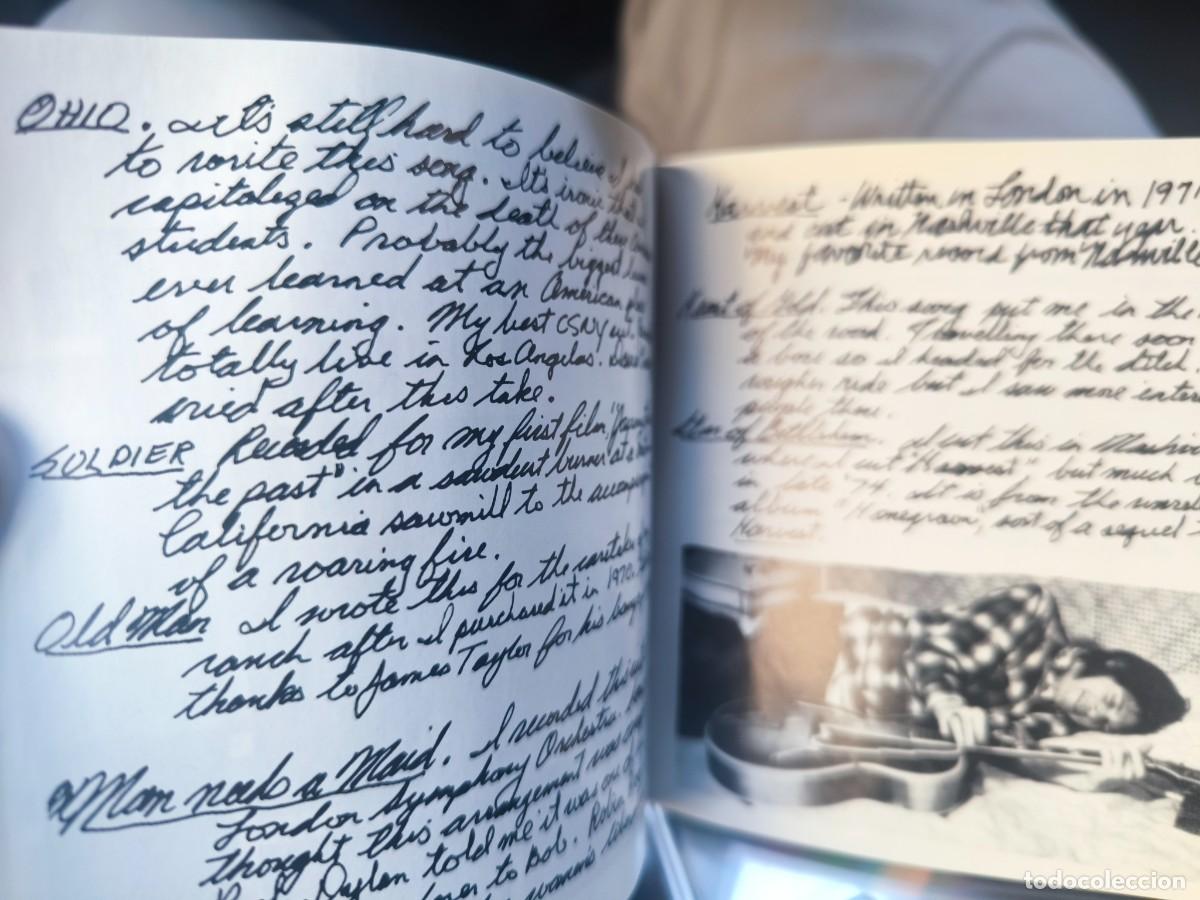 OHIO. It's still hard to believe I
to write this song. It's ironic that
capitalized on the death of these
students. Probably the biggest
ever learned at an American
of learning. My best CSNY cut.
totally live in Los Angeles.
cried after this take.
SOLDIER Recorded for my first film, "Journey
the past" in a sawdust burner at a
California sawmill to the
of a roaring fire.
Old Man I wrote this for the caretaker
ranch after I purchased it in 1970.
thanks to James Taylor for his
A Man needs a Maid. I recorded this
London Symphony Orchestra.
thought this arrangement was
Dylan told me it was one of
to Bob.
Harvest - Written in London in 197
and cut in Nashville that year.
my favorite record from Nashville
Heart of Gold. This song put me in the
of the road. Travelling there soon
a bore so I headed for the ditch.
rougher ride but I saw more inter
people there.
Star of Bethlehem. I cut this in Nashv
where I cut "Harvest" but much
in late '74. It is from the unre
album "Homegrown", sort of a sequel
Harvest.
todocoleccion